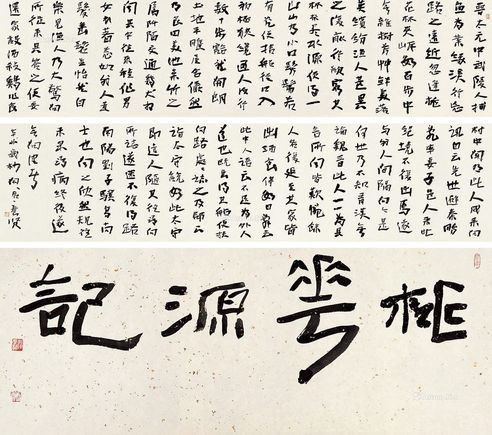 晉太元中武陵人捕
魚為業緣溪行忘
路之遠近忽逢桃
花林夾岸數百步中
無雜樹芳草鮮美落
英繽紛漁人甚異
之復前行欲窮其
林林盡水源便得一
山山有小口髣髴若
有光便捨船從口入
數十步豁然開朗
土地平曠屋舍儼然
有良田美池桑竹之
屬阡陌交通雞犬相
聞其中往來種作男
女衣著悉如外人黃
髮垂髫並怡然自
樂見漁人乃大驚問
所從來具答之便要
還家設酒殺雞作食
村中聞有此人咸來問
訊自云先世避秦時
亂率妻子邑人來此
絕境不復出焉遂
與外人間隔問今是
何世乃不知有漢無
論魏晉此人一一為具
言所聞皆歎惋餘
人各復延至其家皆
出酒食停數日辭去
道也既出得其船便扶
向路處處誌之及郡下
詣太守說如此太守
即遣人隨其往尋向
所誌遂迷不復得路
南陽劉子驥高尚
士也聞之欣然規往
未果尋病終後遂
無問津者
桃華源記